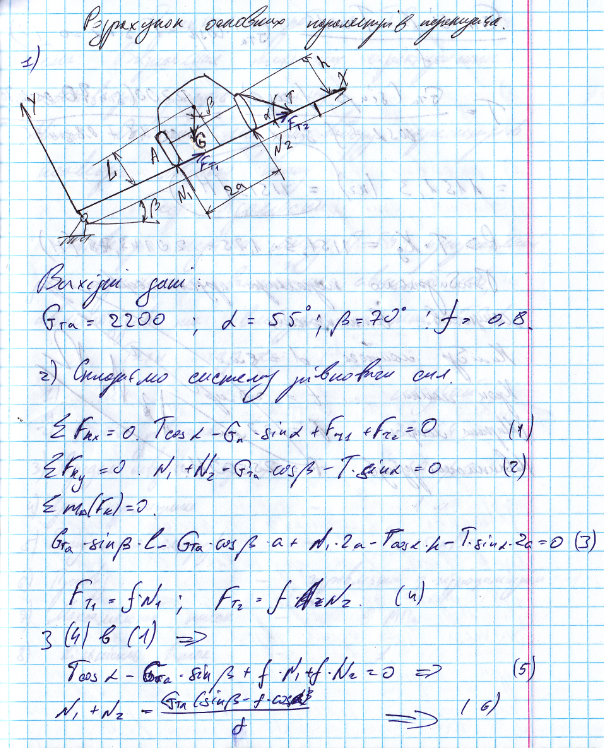 Розрахунок основних параметрів перекидача.
1)
Y
h
X
β
T
α
G
A
F_T2
L
F_T1
N_2
N_1
2a
β
Вихідні дані:
G_та = 2200 ; α = 55° ; β = 70° ; f = 0,8
2) Складаємо систему рівноваги сил.
ΣF_кх = 0. Tcosα - G_п · sinα + F_T1 + F_T2 = 0 (1)
ΣF_ку = 0. N_1 + N_2 - G_та · cosβ - T · sinα = 0 (2)
Σm_A(F_к) = 0.
G_та · sinβ · l - G_та · cosβ · a + N_1 · 2a - Tcosα · h - T · sinα · 2a = 0 (3)
F_T1 = f · N_1 ; F_T2 = f · N_2. (4)
З (4) в (1) ⇒
Tcosα - G_та · sinβ + f · N_1 + f · N_2 = 0 ⇒ (5)
N_1 + N_2 = G_та (sinβ - f · cos / f ⇒ (6)